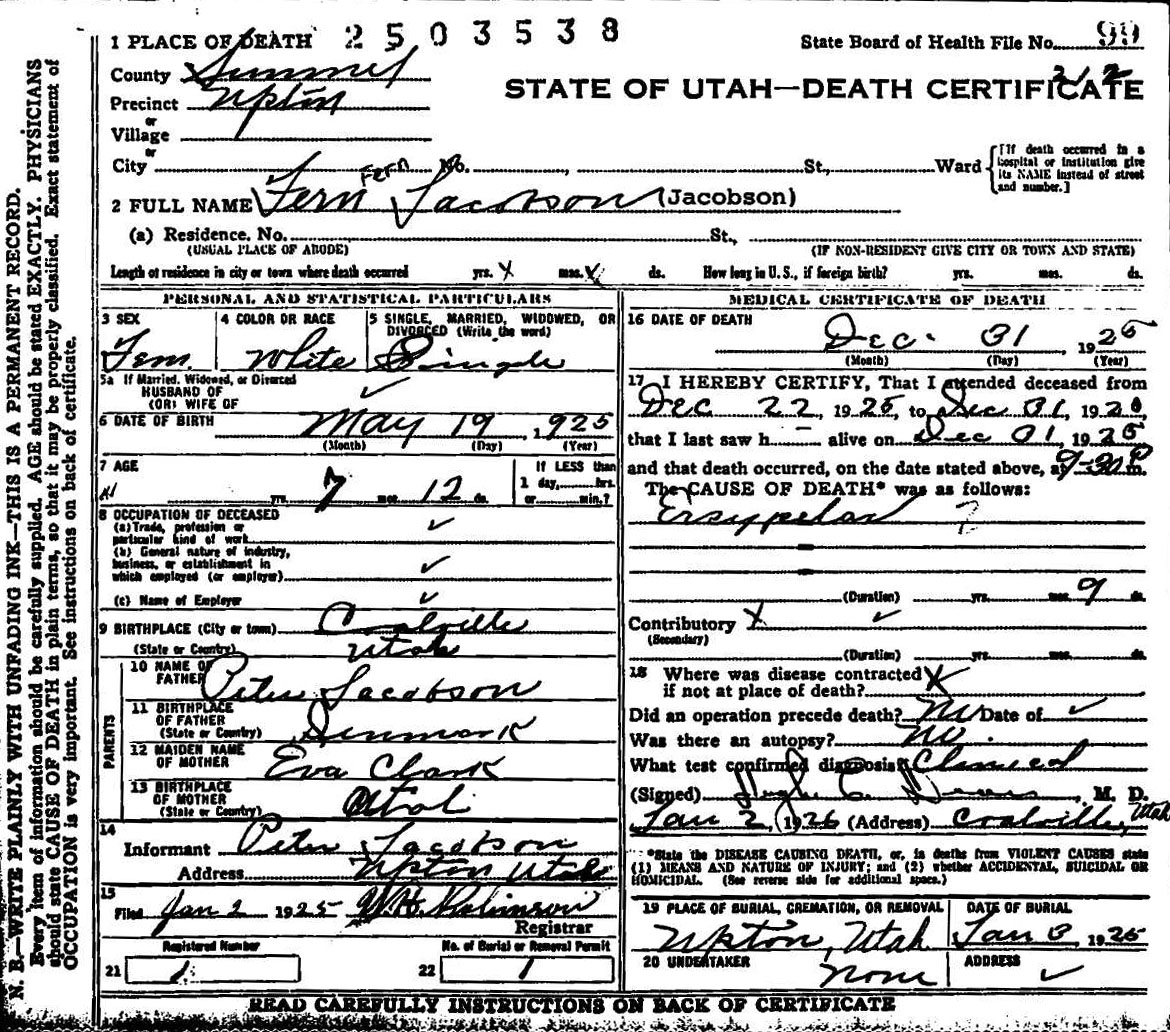 1 PLACE OF DEATH 2503538
State Board of Health File No. 99
212
County Summit
STATE OF UTAH—DEATH CERTIFICATE
Precinct Upton
or
Village
or
City No. St., Ward
[If death occurred in a hospital or institution give its NAME instead of street and number.]
Fern
2 FULL NAME Fern Jacobson (Jacobson)
(a) Residence. No. St.,
(USUAL PLACE OF ABODE) (IF NON-RESIDENT GIVE CITY OR TOWN AND STATE)
Length of residence in city or town where death occurred yrs. X mos. X ds. How long in U. S., if foreign birth? yrs. mos. ds.
PERSONAL AND STATISTICAL PARTICULARS
3 SEX 4 COLOR OR RACE 5 SINGLE, MARRIED, WIDOWED, OR DIVORCED (Write the word)
Fem. White Single
5a If Married, Widowed, or Divorced
HUSBAND OF
(OR) WIFE OF
6 DATE OF BIRTH May 19, 925
(Month) (Day) (Year)
7 AGE If LESS than
yrs. 7 mos. 12 ds. 1 day, hrs.
or min.?
8 OCCUPATION OF DECEASED
(a) Trade, profession or
particular kind of work
(b) General nature of industry,
business, or establishment in
which employed (or employer)
(c) Name of Employer
9 BIRTHPLACE (City or town) Coalville
(State or Country) Utah
PARENTS
10 NAME OF
FATHER Peter Jacobson
11 BIRTHPLACE
OF FATHER
(State or Country) Denmark
12 MAIDEN NAME
OF MOTHER Eva Clark
13 BIRTHPLACE
OF MOTHER
(State or Country) Utah
14
Informant Peter Jacobson
Address Upton Utah
15
Filed Jan 2 1925 W.H. Robinson
Registrar
Registered Number No. of Burial or Removal Permit
21 1 22 1
MEDICAL CERTIFICATE OF DEATH
16 DATE OF DEATH
Dec. 31 1925
(Month) (Day) (Year)
17 I HEREBY CERTIFY, That I attended deceased from
Dec 22, 1925, to Dec 31, 192
that I last saw h alive on Dec 31 1925
and that death occurred, on the date stated above, at 9-30 P m.
The CAUSE OF DEATH* was as follows:
Ersypelas ?
(Duration) yrs. mos. 9 ds.
Contributory X
(Secondary)
(Duration) yrs. mos. ds.
18 Where was disease contracted
if not at place of death? X
Did an operation precede death? No Date of
Was there an autopsy? No.
What test confirmed diagnosis? Clinical
(Signed) Hugh C., M. D.
Jan 2, 1926 (Address) Coalville, Utah
*State the DISEASE CAUSING DEATH, or, in deaths from VIOLENT CAUSES state
(1) MEANS AND NATURE OF INJURY; and (2) whether ACCIDENTAL, SUICIDAL OR
HOMICIDAL. (See reverse side for additional space.)
19 PLACE OF BURIAL, CREMATION, OR REMOVAL DATE OF BURIAL
Upton, Utah Jan 3, 1925
20 UNDERTAKER ADDRESS
None
READ CAREFULLY INSTRUCTIONS ON BACK OF CERTIFICATE
N. B.—WRITE PLAINLY WITH UNFADING INK—THIS IS A PERMANENT RECORD.
Every item of information should be carefully supplied. AGE should be stated EXACTLY. PHYSICIANS
should state CAUSE OF DEATH in plain terms, so that it may be properly classified. Exact statement of
OCCUPATION is very important. See instructions on back of certificate.